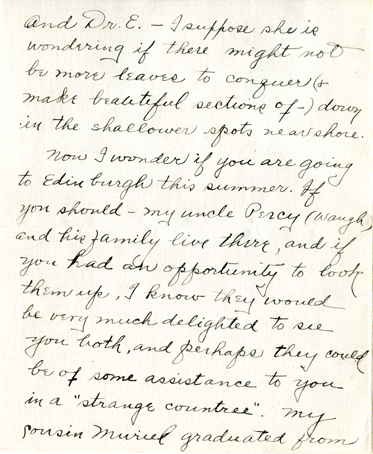 and Dr. E. - I suppose she is
wondering if there might not
be more leaves to conquer (&
make beautiful sections of -) down
in the shallower spots near shore.
Now I wonder if you are going
to Edinburgh this summer. If
you should - my uncle Percy (Waugh)
and his family live there, and if
you had an opportunity to look
them up, I know they would
be very much delighted to see
you both, and perhaps they could
be of some assistance to you
in a "strange countree". My
cousin Muriel graduated from